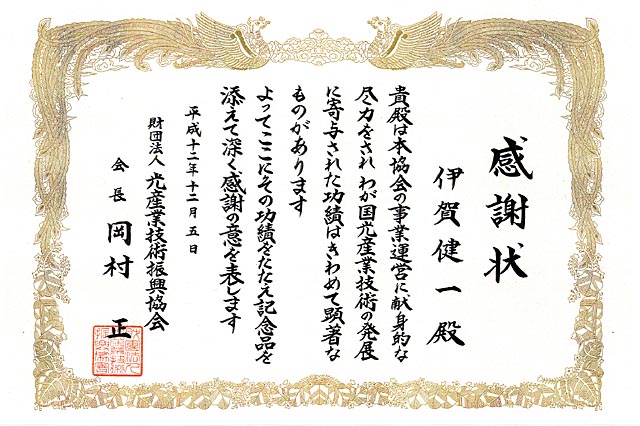 感謝状
伊賀健一殿
貴殿は本協会の事業運営に献身的な
尽力をされ わが国光産業技術の発展
に寄与された功績はきわめて顕著な
ものがあります
よってここにその功績をたたえ記念品を
添えて深く感謝の意を表します
平成十二年十二月五日
財団法人 光産業技術振興協会
会長 岡村 正